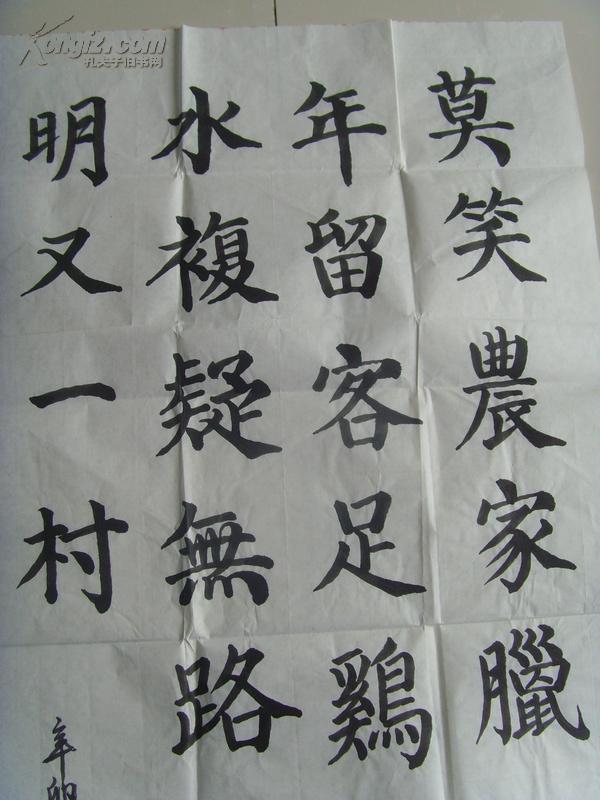 莫笑農家臘
年留客足鷄
水複疑無路
明又一村
辛卯
Kongfz.com
孔夫子旧书网